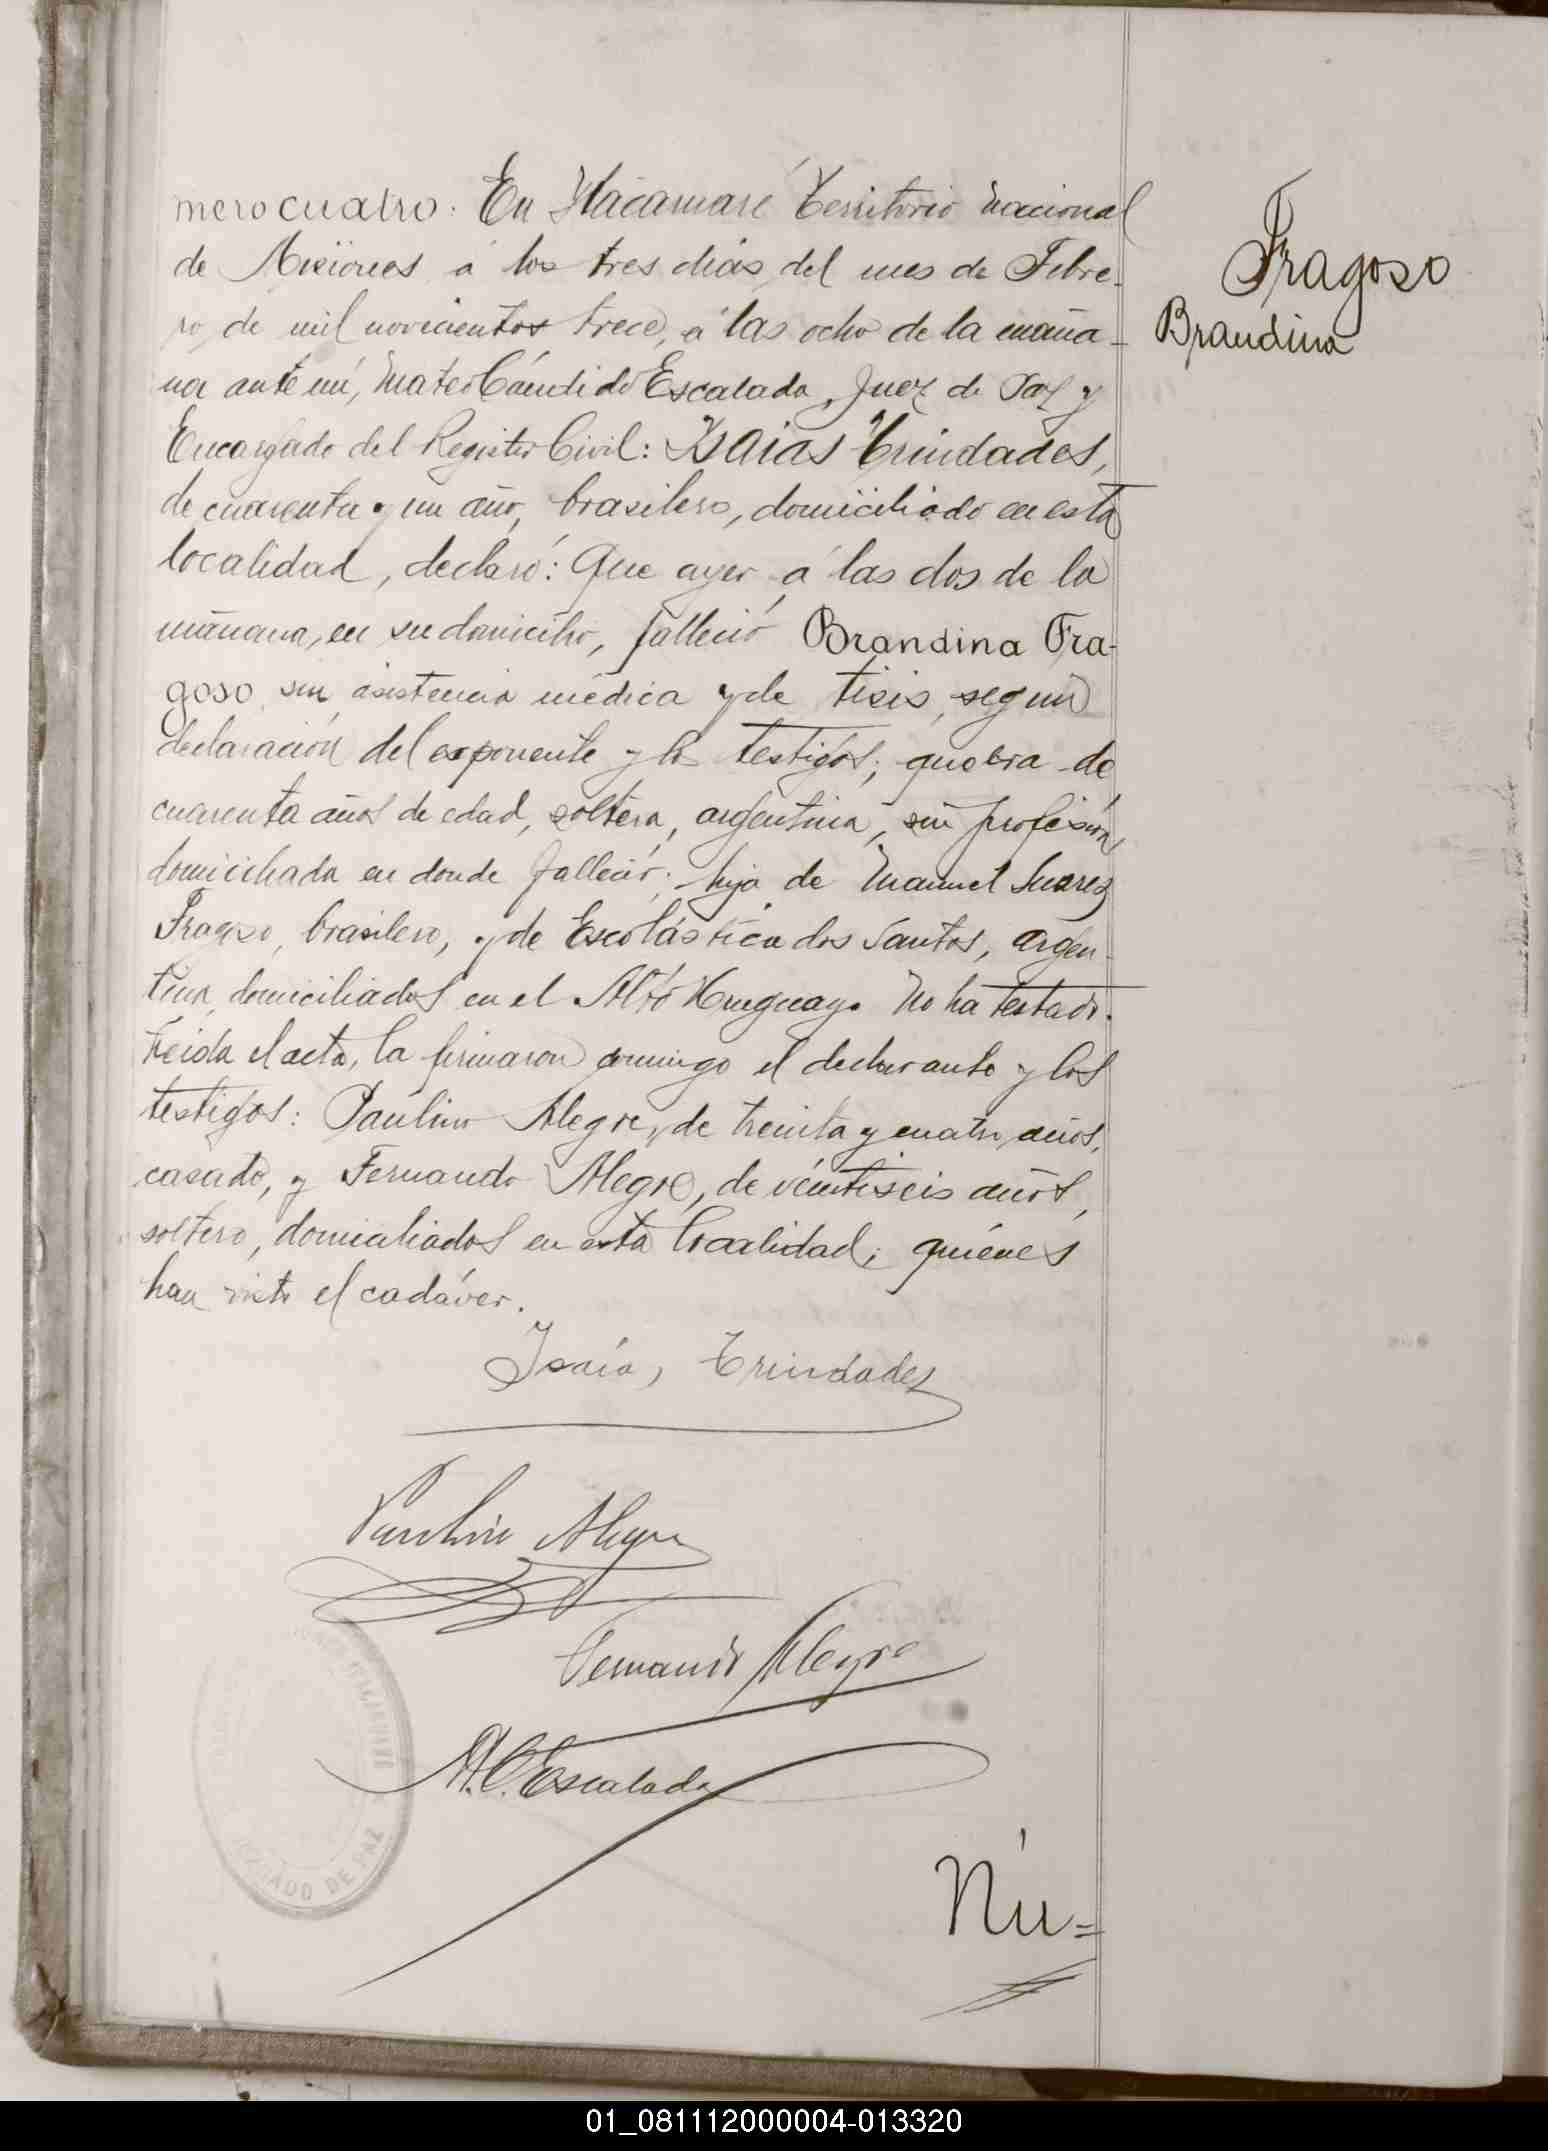 mero cuatro. En Itacaruaré Territorio Nacional
de Misiones á los tres dias del mes de Febre-
ro, de mil novecientos trece, á las ocho de la maña-
na ante mí, Mateo Cándido Escalada, Juez de Paz y
Encargado del Registro Civil: Isaias Trindades,
de cuarenta y un año, brasilero, domiciliado en esta
localidad, declaró: Que ayer á las dos de la
mañana, en su domicilio, falleció Brandina Fra-
goso, sin asistencia médica y de tisis, segun
declaración del esponente y los testigos; que era de
cuarenta años de edad, soltera, argentina, sin profesión,
domiciliada en donde falleció; hija de Manuel Suarez
Fragoso, brasilero, y de Escolástica dos Santos, argen-
tina, domiciliados en el Alto Uruguay. No ha testado.
Leida el acta, la firmaron conmigo el declarante y los
testigos: Paulino Alegre, de treinta y cuatro años,
casado, y Fernando Alegre, de veintiseis años,
soltero, domiciliados en esta localidad; quiénes
han visto el cadáver.
Isaia, Trindades
Paulino Alegre
Fernando Alegre
M. C. Escalada
JUZGADO DE PAZ
Nú=
Fragoso
Brandina
01_081112000004-013320